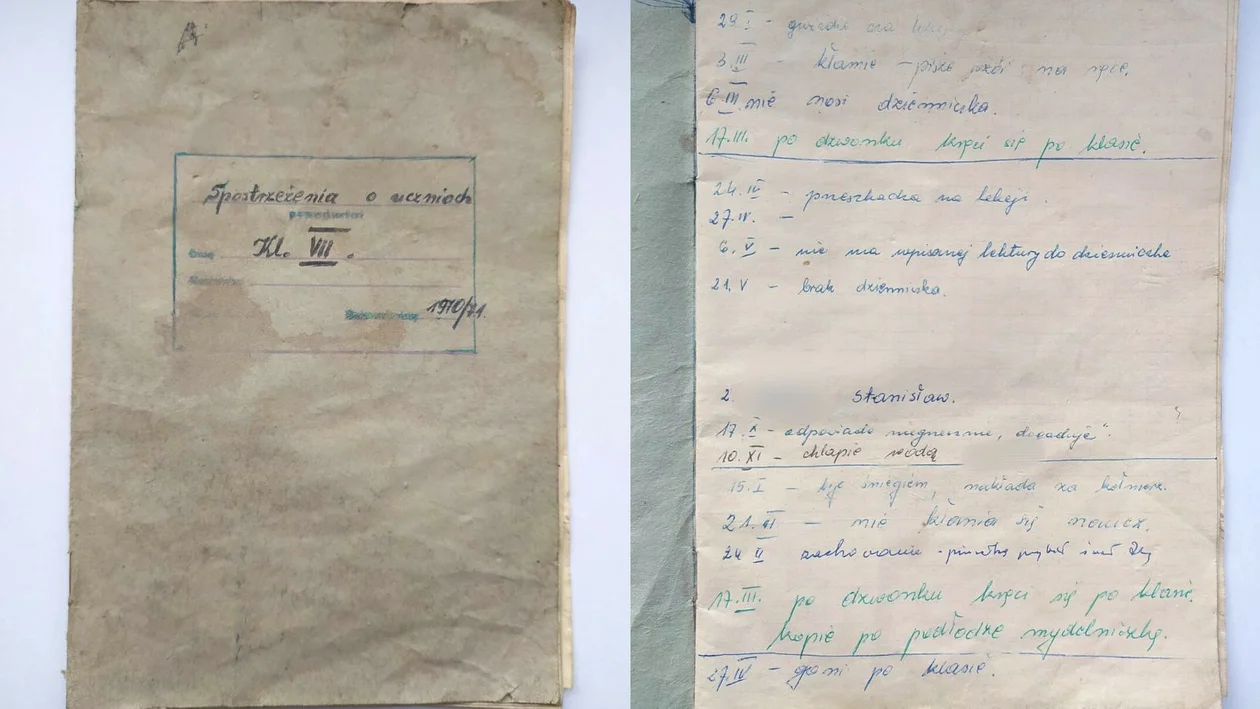 Spostrzeżenia o uczniach
Kl. VII.
1970/71
29. I - gwiżdże na lekcji
3. III - kłamie - pisze pióri na ręce.
6 III nie nosi dzienniczka.
17. III. po dzwonku kręci się po klasie.
24. IV - przeszkadza na lekcji.
27. IV. -
6. V - nie ma wpisanej lektury do dzienniczka
21. V - brak dzienniczka.
2. Stanisław.
17. X - odpowiada niegrzecznie, "dogaduje".
10. XI - chlapie wodą
15. I - bije śniegiem, nakłada za kołnierz.
21. - nie kłania się
24 II zachowanie
17. III. po dzwonku kręci się po klasie.
kopie po podłodze mydelniczkę.
27. IV - goni po klasie.